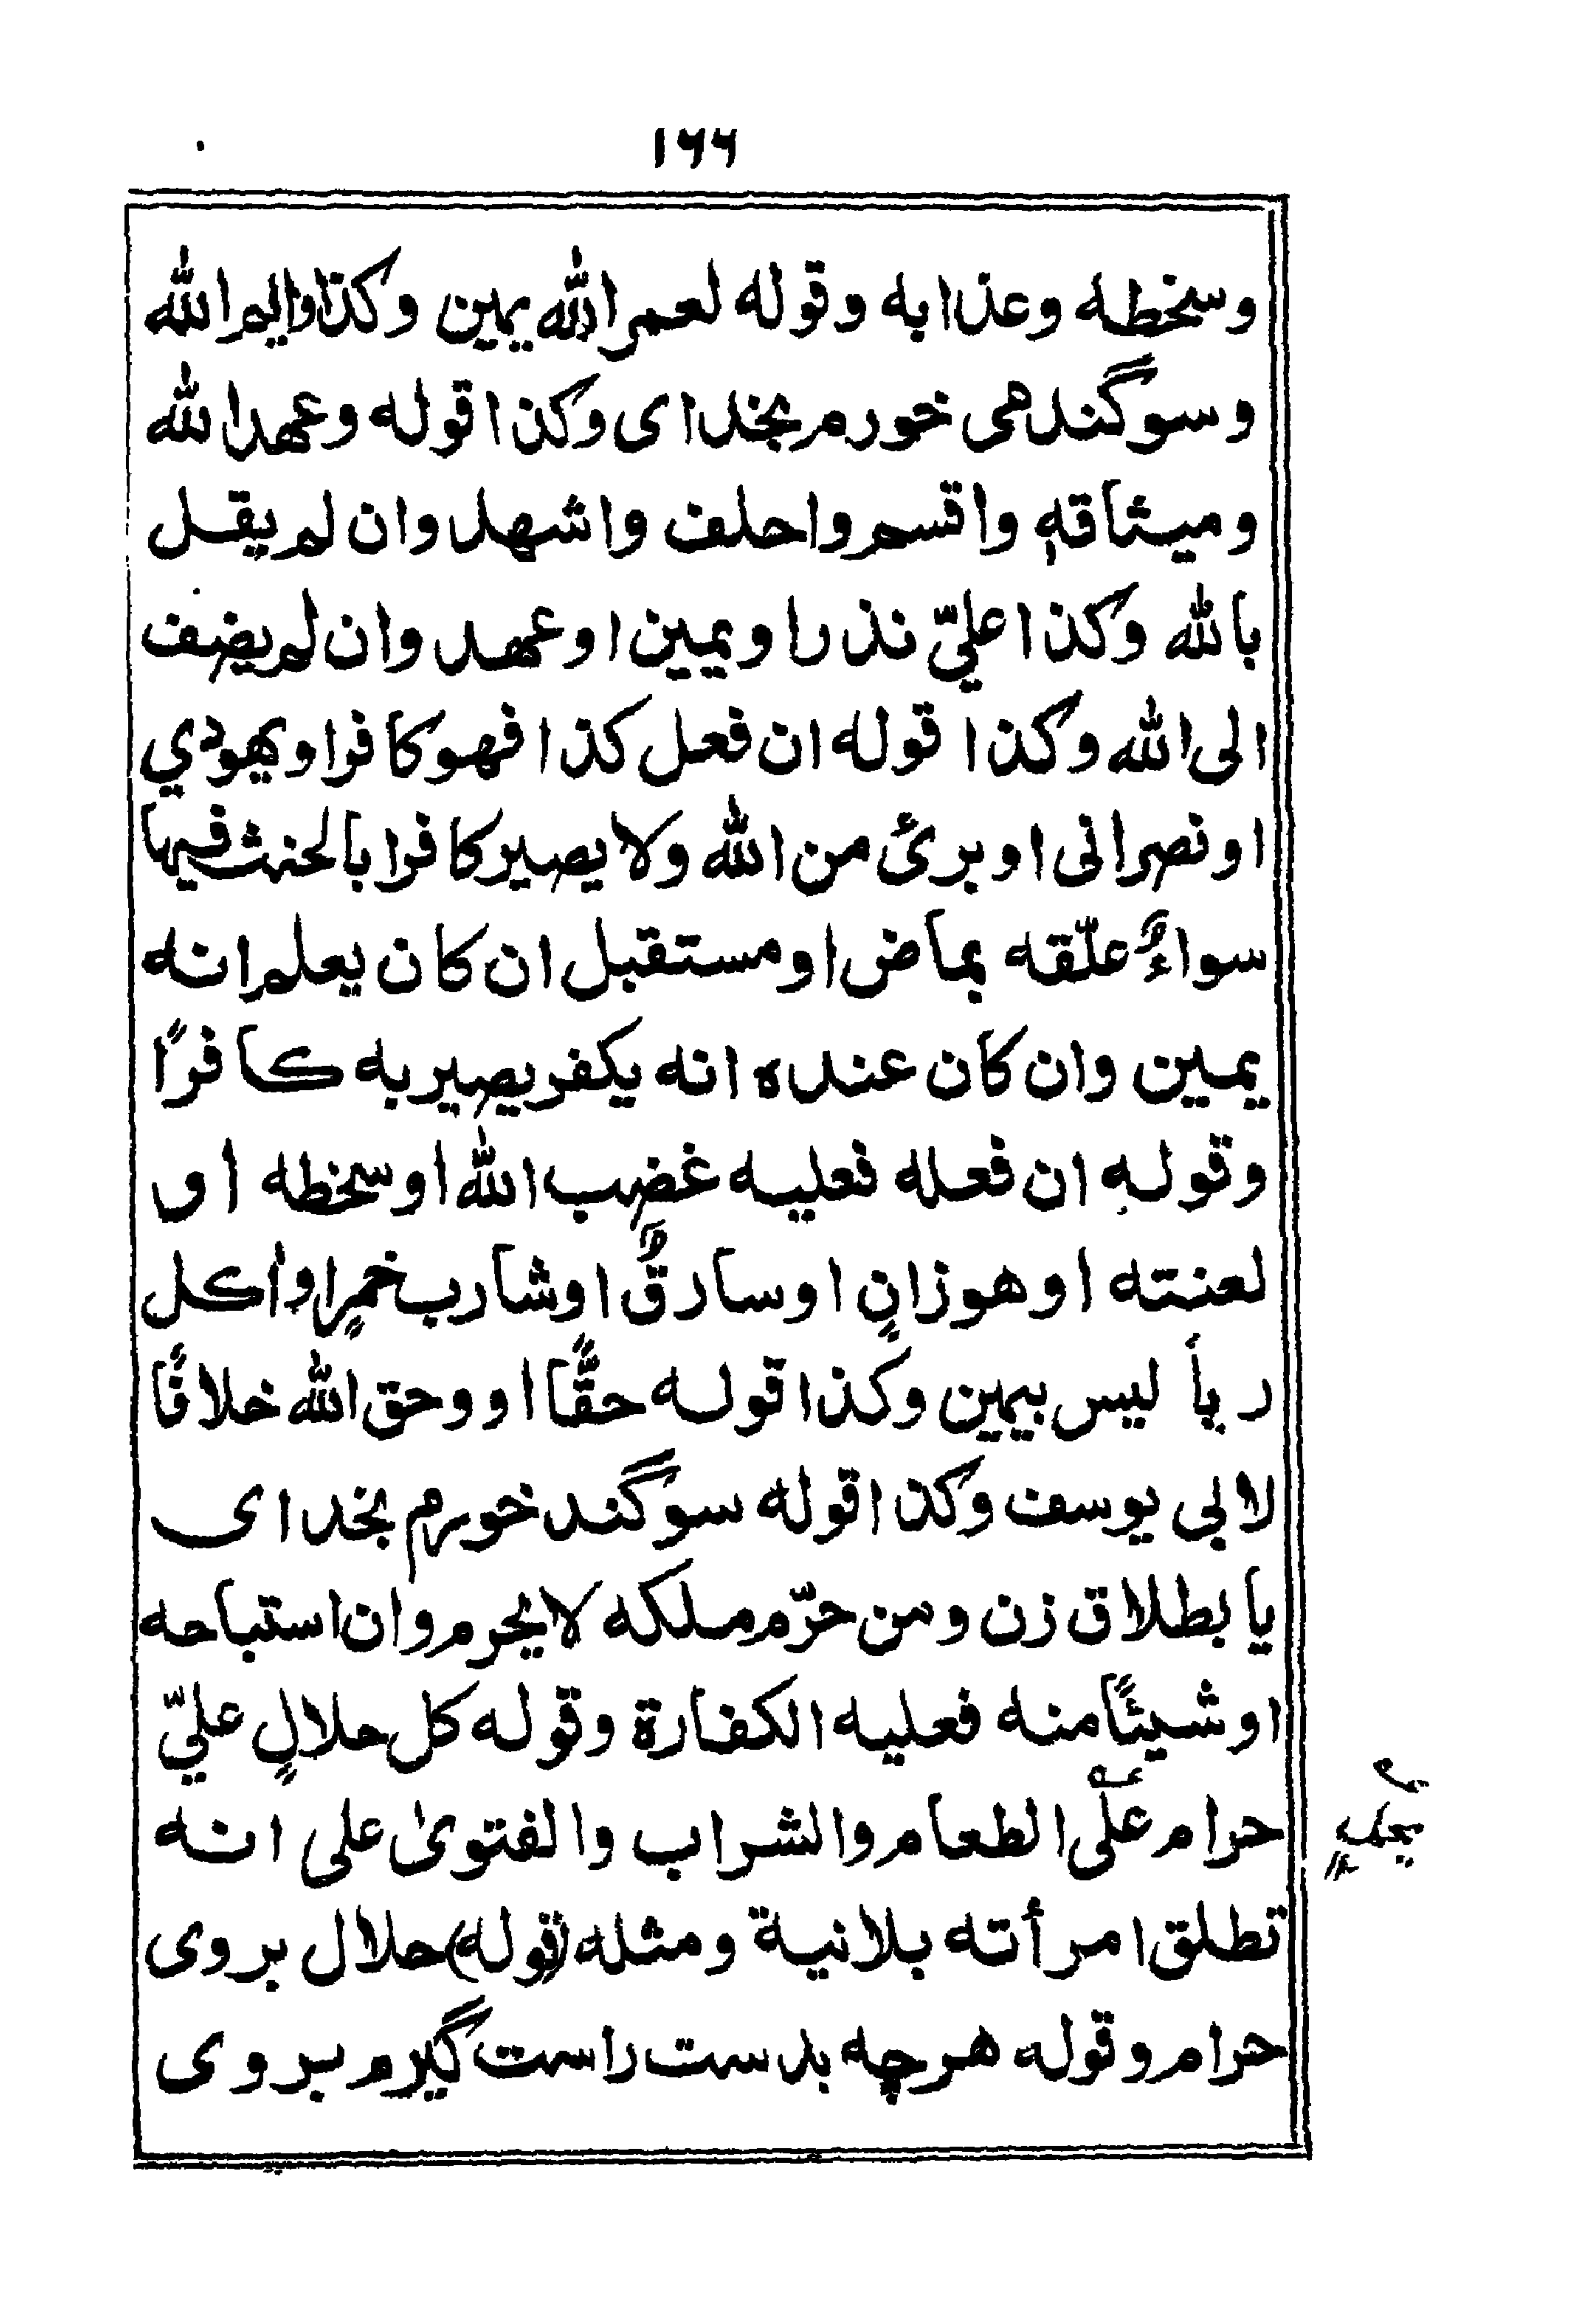 ١٦٦
وسخطه وعذابه وقوله لعمر الله يمين وكذا وايم الله
وسوگند می خورم بخدای وكذا قوله وعهد الله
وميثاقه واقسم واحلف واشهد وان لم يقل
بالله وكذا عليّ نذر او يمين او عهد وان لم يضف
الى الله وكذا قوله ان فعل كذا فهو كافر او يهودي
او نصرانى او برئ من الله ولا يصير كافرا بالحنث فيها
سواءٌ علّقه بماض او مستقبل ان كان يعلم انه
يمين وان كان عنده انه يكفر يصير به كافرًا
وقوله ان فعله فعليه غضب الله او سخطه او
لعنته او هو زانٍ او سارقٌ او شارب خمرٍ او اكل
ربأ ليس بيمين وكذا قوله حقًّا او وحق الله خلافًا
لابى يوسف وكذا قوله سوگند خورم بخدای
يا بطلاق زن ومن حرّم ملكه لا يحرم وان استباحه
او شيئًا منه فعليه الكفارة وقوله كل حلالٍ عليّ
حرام على الطعام والشراب والفتوىٰ على انه
تطلق امرأته بلانية ومثله (قوله) حلال بروى
حرام وقوله هرچه بدست راست گيرم بروى